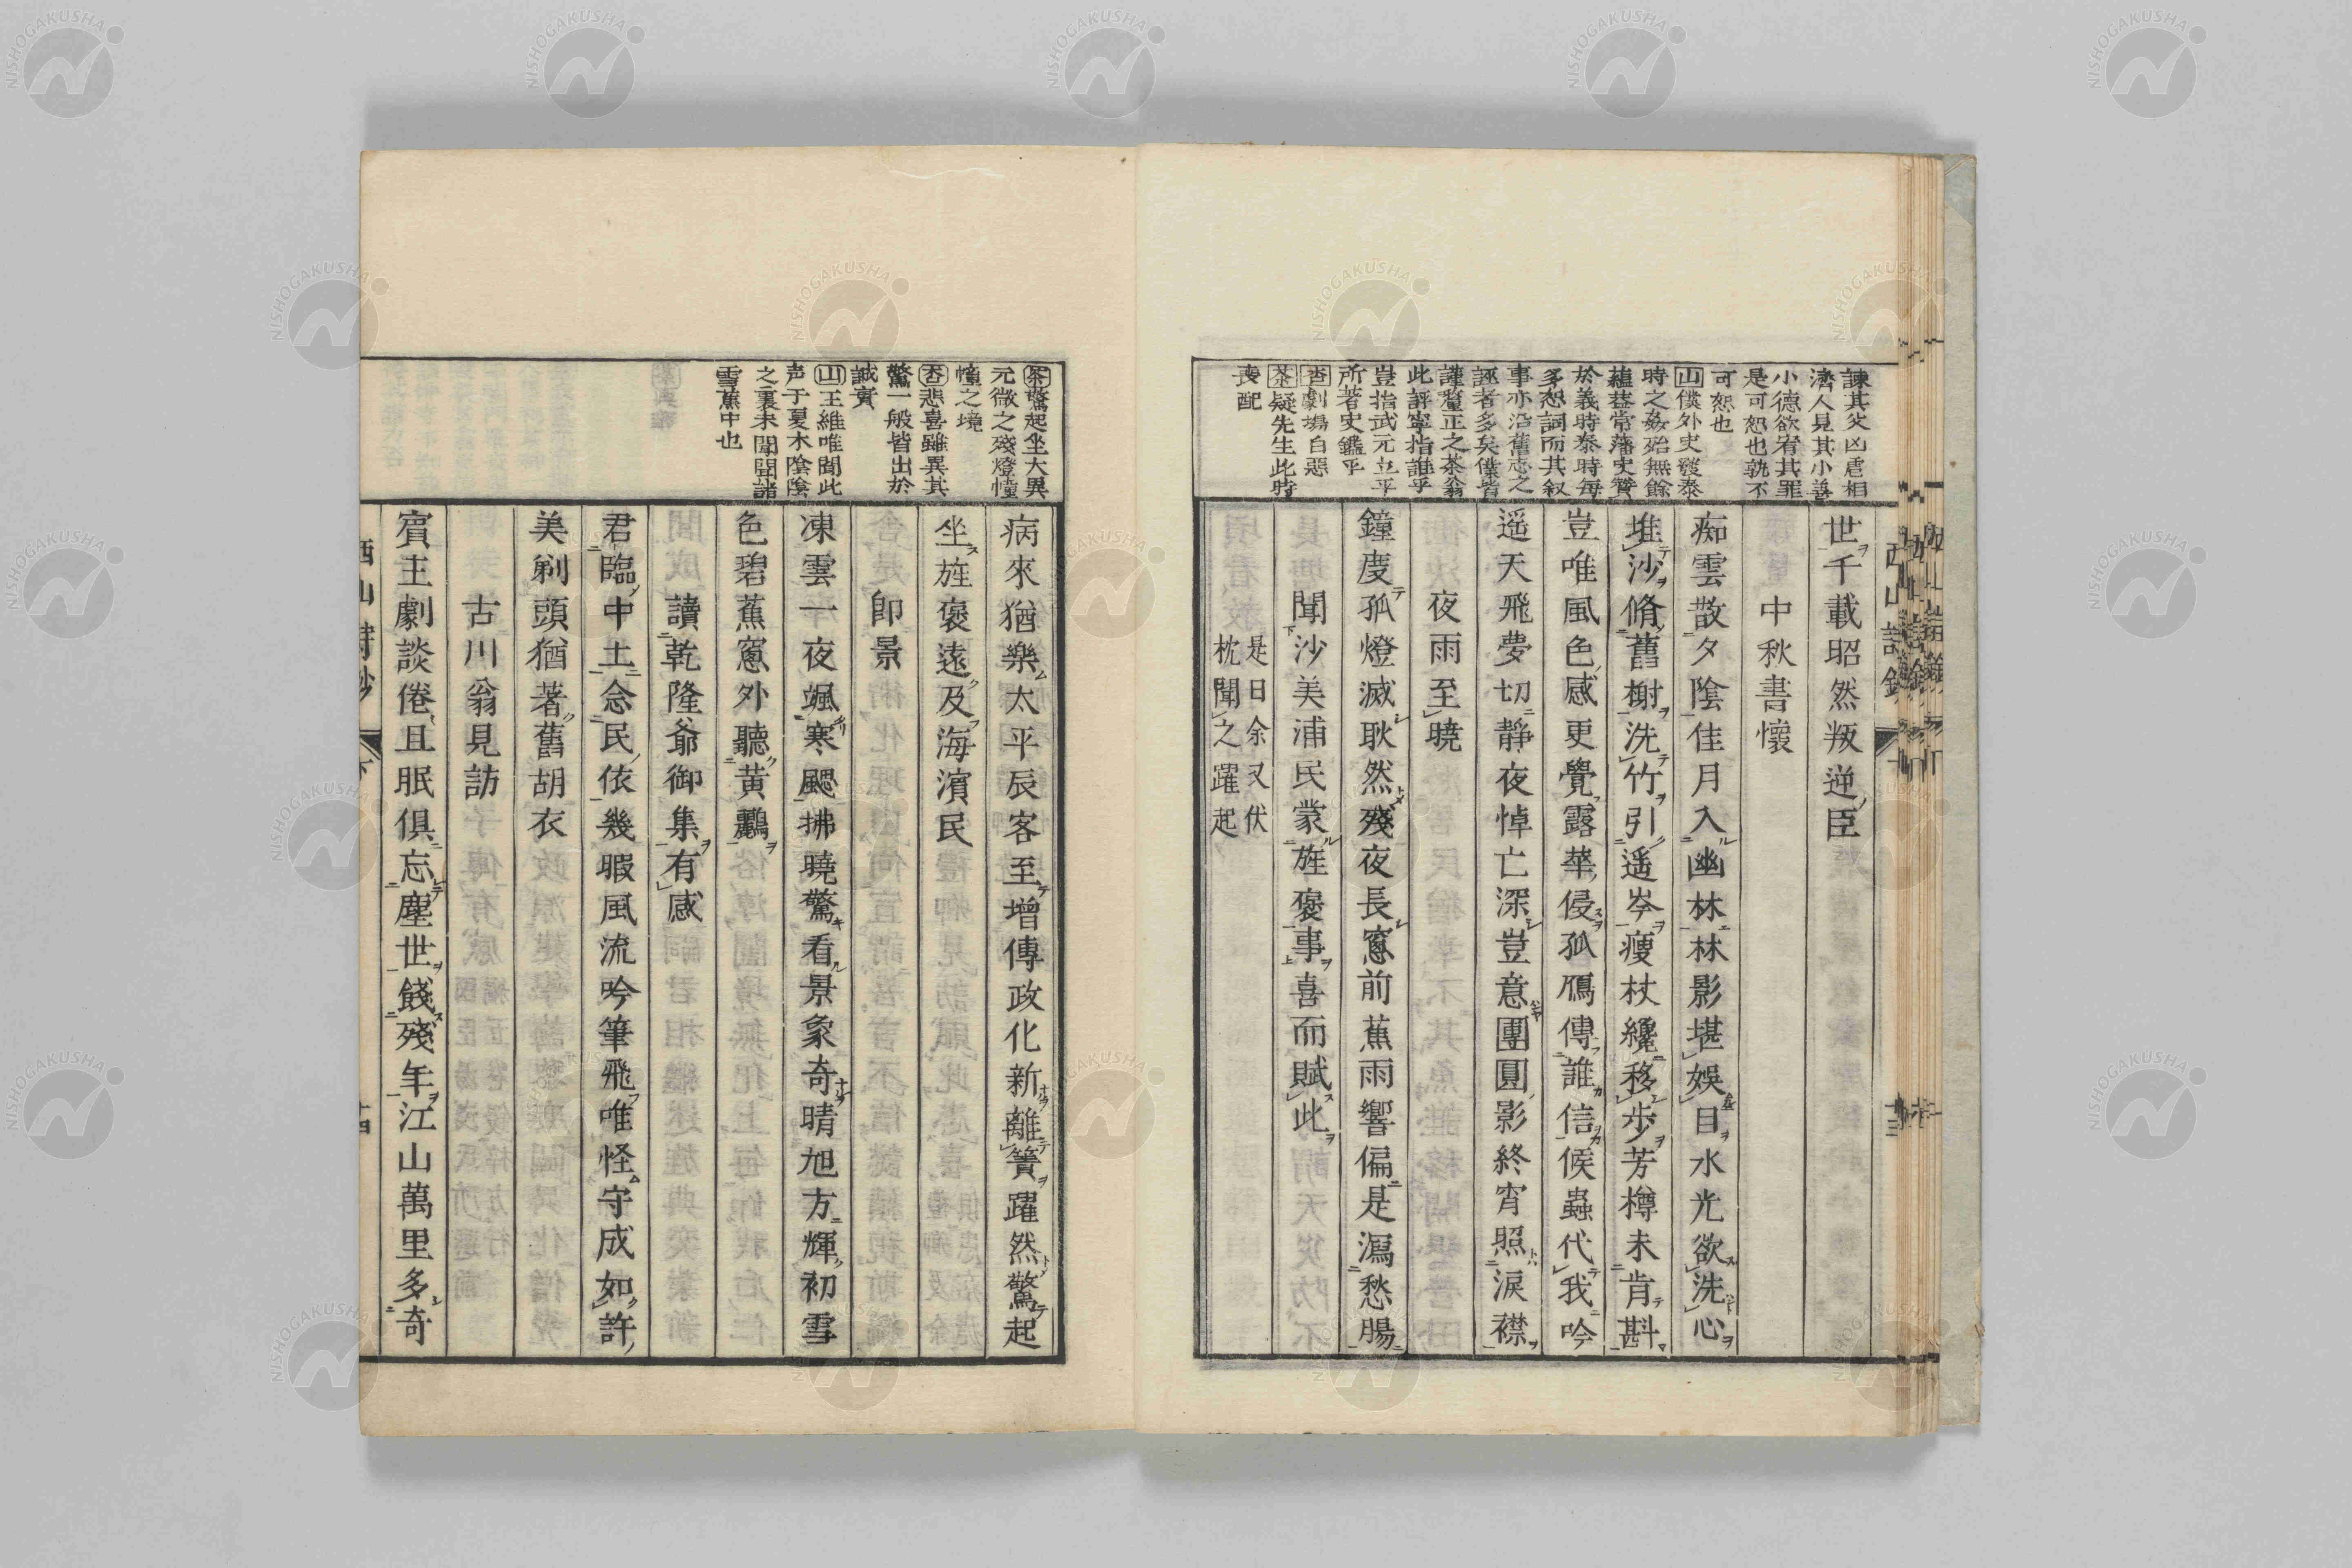 諫其父凶虐相
濟人見其小善
小德欲宥其罪
是可恕也孰不
可恕也
山僕外史發泰
時之姦殆無餘
蘊甚常藩史贊
於義時泰時每
多恕詞而其叙
事亦沿舊志之
誣者多矣僕皆
謹釐正之茶翁
此評寧指誰乎
豈指武元立平
所著史鑑乎
杏劇塲白惡
茶疑先生此時
喪配
世千載昭然叛逆臣
中秋書懷
痴雲散夕陰佳月入幽林林影堪娛目水光欲洗心
堆沙脩舊榭洗竹引遥岑瘦杖纔移步芳樽未肯斟
豈唯風色感更覺露華侵孤鴈傳誰信候蟲代我吟
遥天飛夢切靜夜悼亡深豈意團圓影終宵照淚襟
夜雨至曉
鐘度孤燈滅耿然殘夜長窻前蕉雨響偏是瀉愁腸
聞沙美浦民蒙旌褒事喜而賦此
是日余又伏
枕聞之躍起
西山詩鈔
十三
茶驚起坐大異
元微之殘燈憧
憧之境
杏悲喜雖異其
驚一般皆出於
誠實
山王維唯聞此
声于夏木陰陰
之裏未聞聞諸
雪蕉中也
病來猶樂太平辰客至增傳政化新離簀躍然驚起
坐旌褒遠及海濱民
卽景
凍雲一夜颯寒颸拂曉驚看景象奇晴旭方輝初雪
色碧蕉窻外聽黄鸝
讀乾隆爺御集有感
君臨中土念民依幾暇風流吟筆飛唯怪守成如許
美剃頭猶著舊胡衣
古川翁見訪
賓主劇談倦且眠俱忘塵世餞殘年江山萬里多奇
西山詩鈔
下
十四